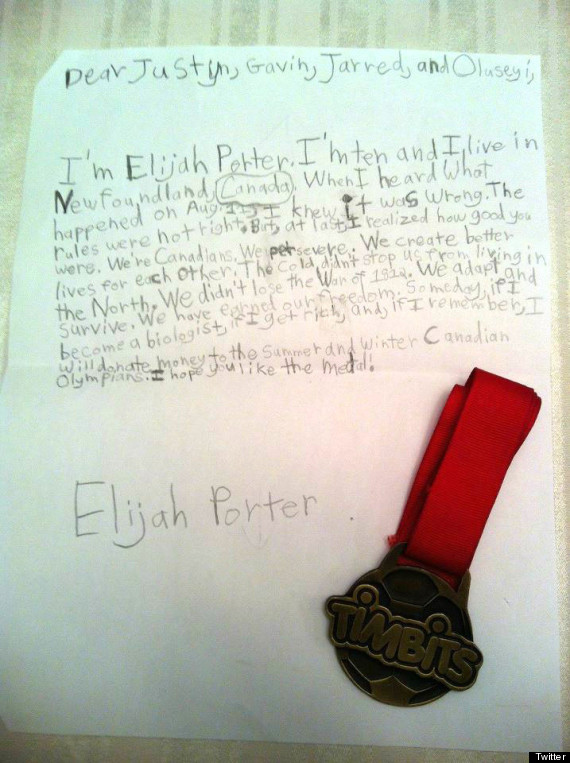 Dear Justyn, Gavin, Jarred, and Oluseyi,
I'm Elijah Porter. I'm ten and I live in
Newfoundland, Canada. When I heard what
happened on Aug. 11, I knew it was wrong. The
rules were not right. But, at last, I realized how good you
were. We're Canadians. We persevere. We create better
lives for each other. The cold didn't stop us from living in
the North. We didn't lose the War of 1812. We adapt and
survive. We have earned our freedom. Someday, if I
become a biologist, if I get rich, and if I remember, I
will donate money to the Summer and Winter Canadian
Olympians. I hope you like the medal!
Elijah Porter
TIMBITS
Twitter